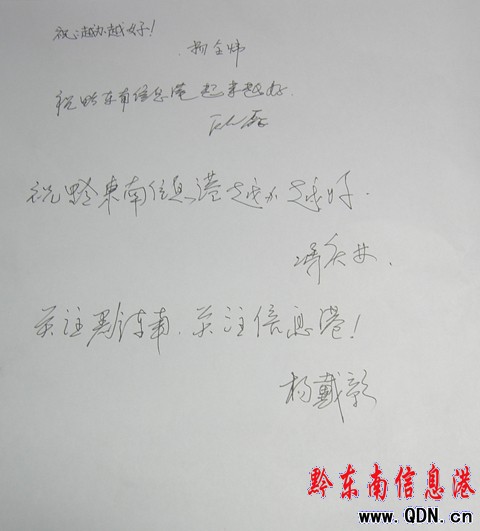 祝:越办越好!
祝黔东南信息港越来越好.
祝黔東南信息港越办越好.
关注黔东南.关注信息港!
杨戴彰
黔东南信息港
www.QDN.cn